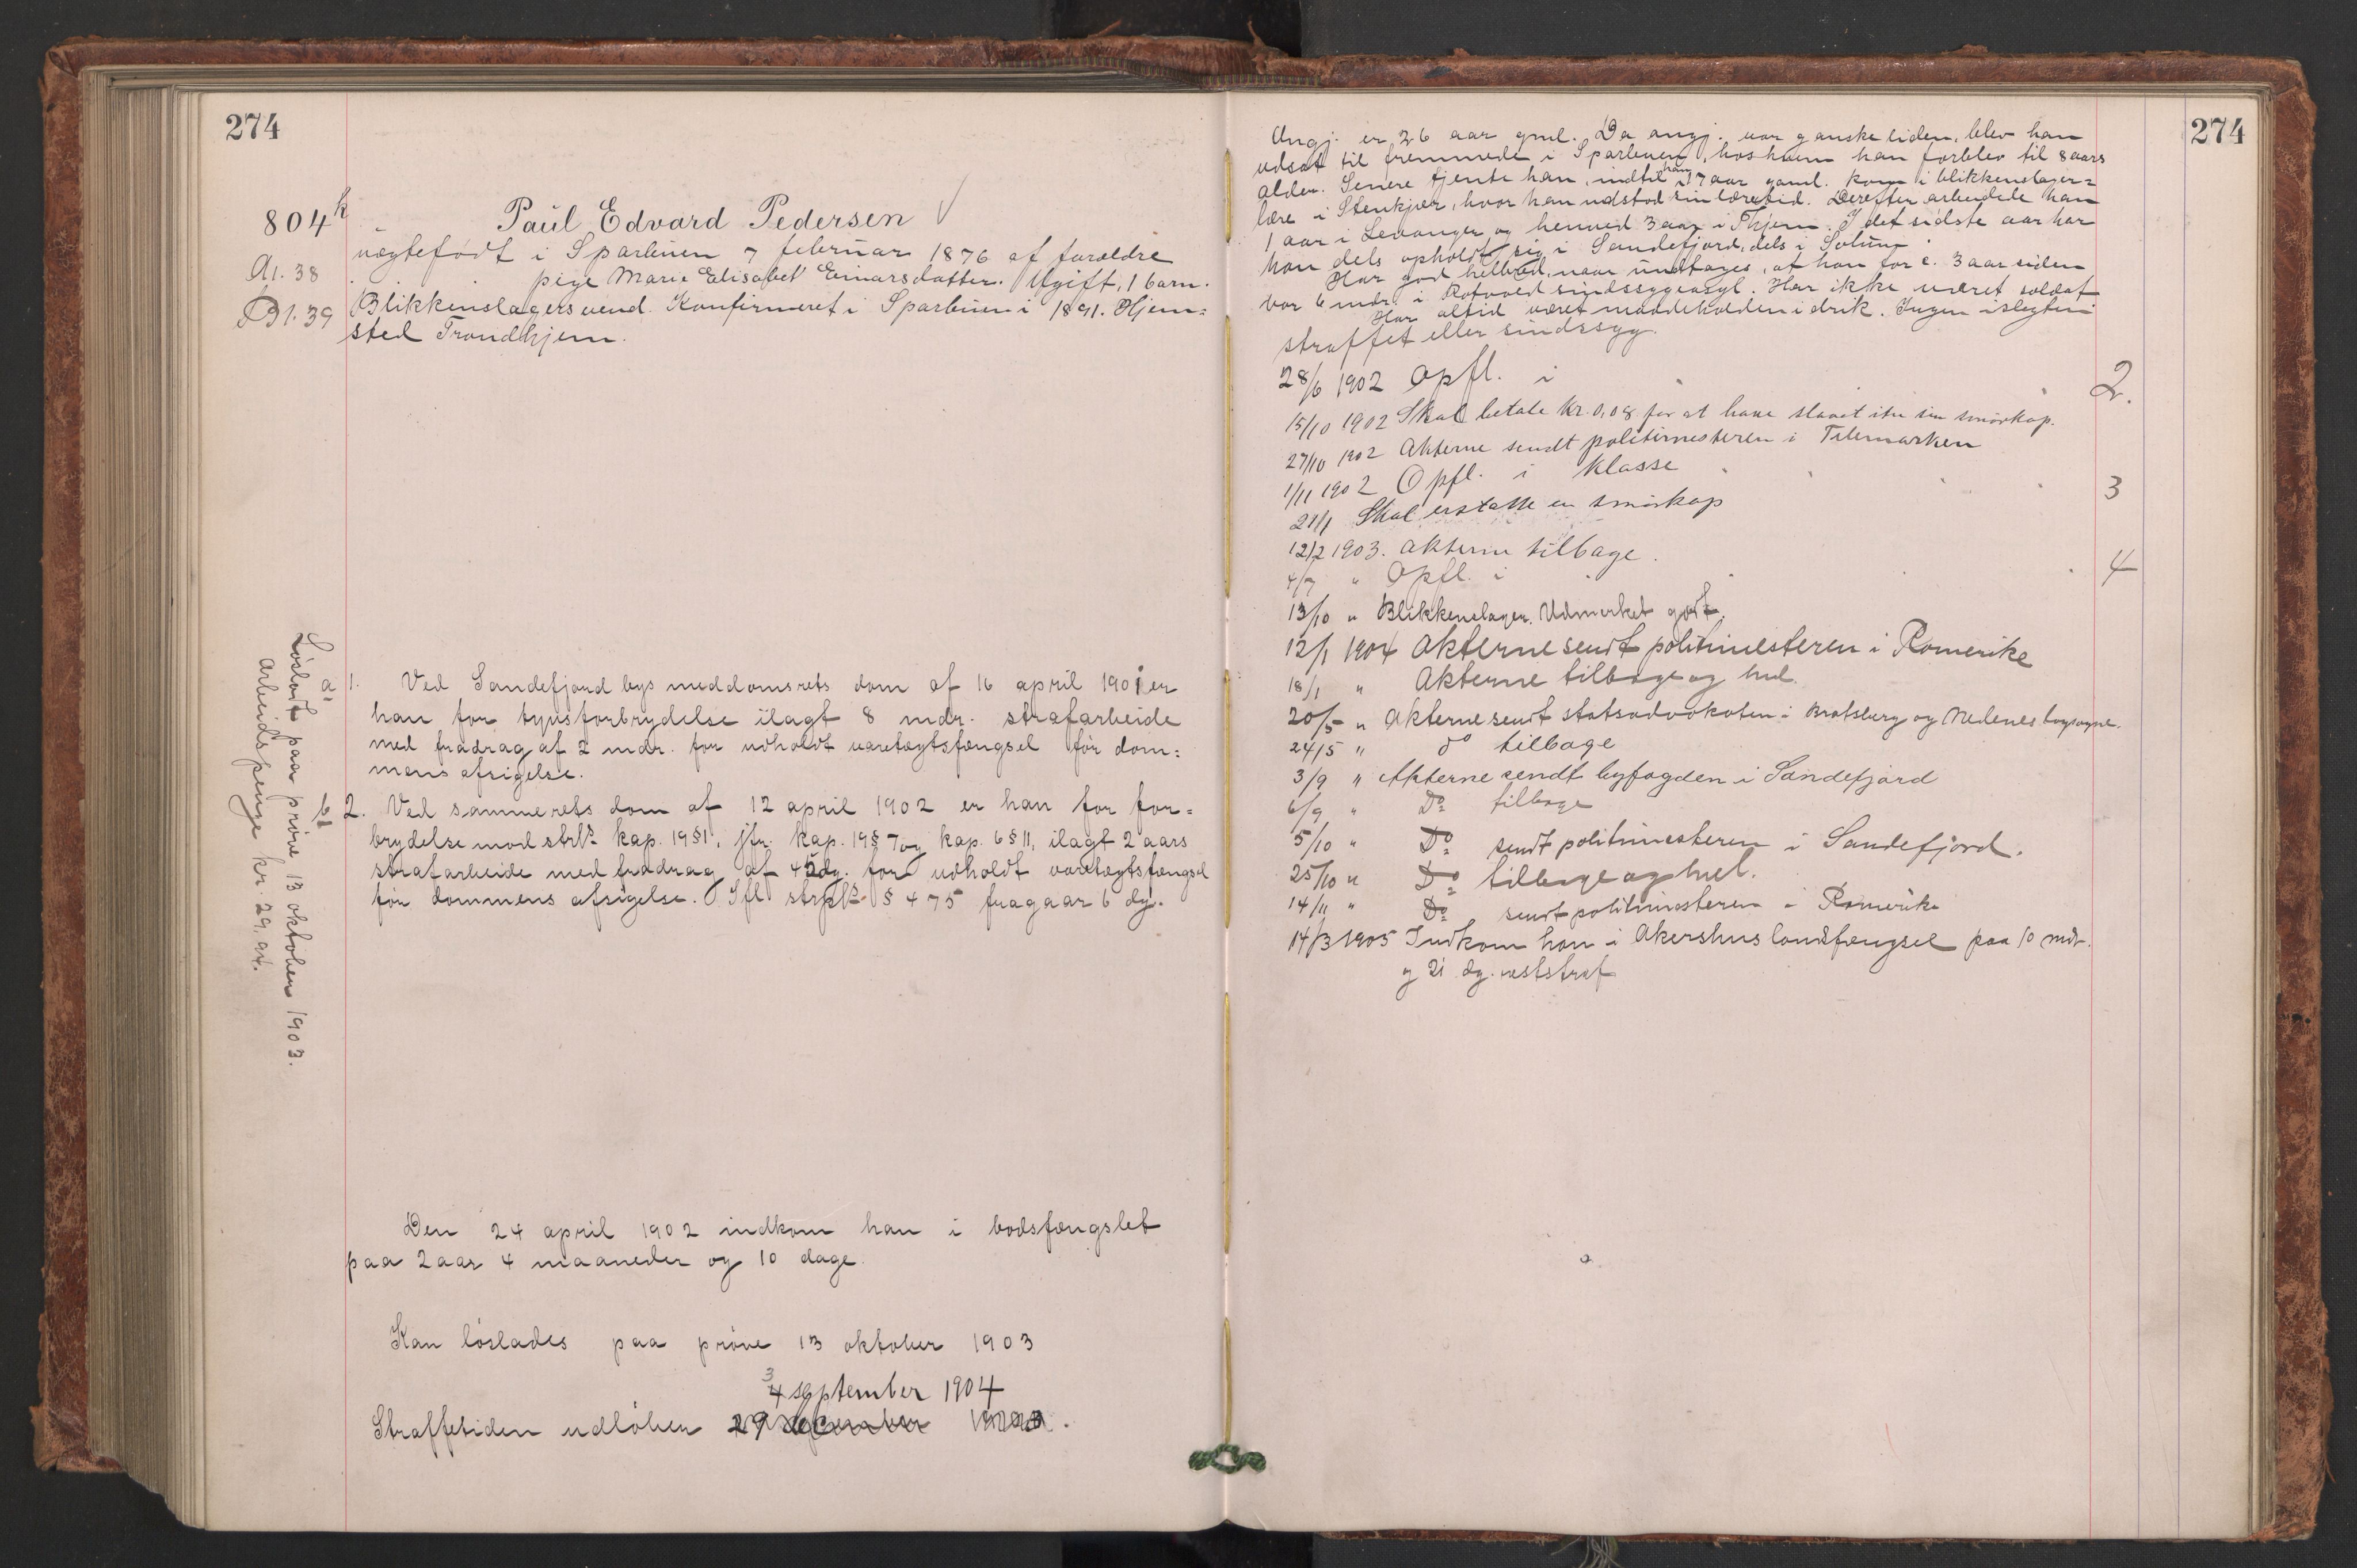 274
804 h
Paul Edvard Pedersen
uægtefødt i Sparbuen 7 februar 1876 af forældre
A1. 38
pige Marie Elisabet Einarsdatter. Ugift, 1 barn.
B1. 39
Blikkenslagersvend. Konfirmeret i Sparbuen i 1891. Hjem=
sted Trondhjem.
a) 1. Ved Sandefjord bys meddomsrets dom af 16 april 1901 er
han for tyvsforbrydelse ilagt 8 mdr. strafarbeide
med fradrag af 2 mdr. for udholdt varetægtsfængsel før dom=
mens afsigelse.
b) 2. Ved sammerets dom af 12 april 1902 er han for for=
brydelse mod strl's kap. 19 § 1, jfr. kap. 19 § 7 og kap. 6 § 11, ilagt 2 aars
strafarbeide med fradrag af 45 dg. for udholdt varetægtsfængsel
før dommens afsigelse. Ifl. § 475 fragaar 6 dg.
Løsladt paa prøve 13 oktober 1903.
Arbeidspenge kr. 29,94.
Den 24 april 1902 indkom han i bodsfængslet
paa 2 aar 4 maaneder og 10 dage.
Kan løslades paa prøve 13 oktober 1903
3
4 september 1904
Straffetiden udløber 29 december 1903.
274
Angj. er 26 aar gml. Da angj. var ganske liden, blev han
udsat til fremmede i Sparbuen, hos hvem han forblev til 8 aars
alder. Senere tjente han, indtil han 17 aar gaml. kom i blikkenslager=
lære i Stenkjær, hvor han udstod sin læretid. Derefter arbeidede han
1 aar i Levanger og henved 3 aar i Thjem. I det sidste aar har
han dels opholdt sig i Sandefjord, dels i Solum.
Har god helbred, naar undtages, at han for c. 3 aar siden
var 6 mdr. i Rotvold sindssygeasyl. Har ikke været soldat
Har altid været maadeholden i drik. Ingen i slegten
straffet eller sindssyg.
28/6 1902 Opfl. i 2.
15/10 1902 Skal betale kr. 0,08 for at have slaaet itu sin smørkop.
27/10 1902 Akterne sendt politimesteren i Telemarken
1/11 1902 Opfl. i klasse 3
21/1 Skal erstatte en smørkop
12/2 1903. Akterne tilbage.
4/7 " Opfl. i 4
13/10 " Blikkenslager. Udmerket godt.
12/1 1904 Akterne sendt politimesteren i Romerike
18/1 " Akterne tilbage og hvel.
20/5 " Akterne sendt statsadvokaten i Bratsberg og Nedenes lagsogne.
24/5 " do tilbage
3/9 " Akterne sendt byfogden i Sandefjord
6/9 " Do tilbage
5/10 " Do sendt politimesteren i Sandefjord.
25/10 " Do tilbage og hvel.
14/11 " Do sendt politimesteren i Romerike
14/3 1905 Indkom han i Akershus landsfængsel paa 10 mdr.
og 21 dg. reststraf